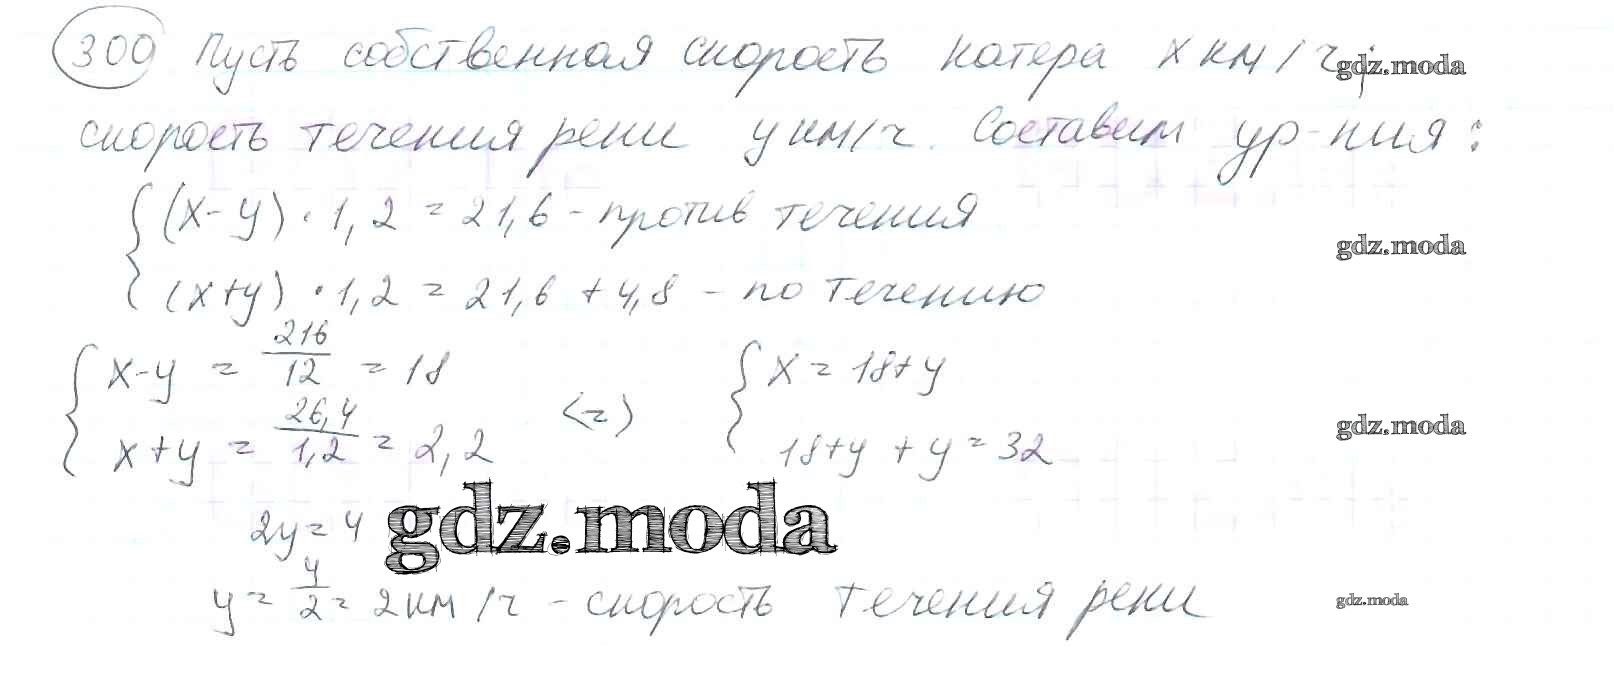 300 Пусть собственная скорость катера x км/ч,
gdz.moda
скорость течения реки y км/ч. Составим ур-ния:
{ (x-y) · 1,2 = 21,6 - против течения
gdz.moda
(x+y) · 1,2 = 21,6 + 4,8 - по течению
{ x-y = 216/12 = 18
x+y = 26,4/1,2 = 2,2
<=>
{ x = 18+y
18+y + y = 32
gdz.moda
2y = 4
gdz.moda
y = 4/2 = 2 км/ч - скорость течения реки
gdz.moda